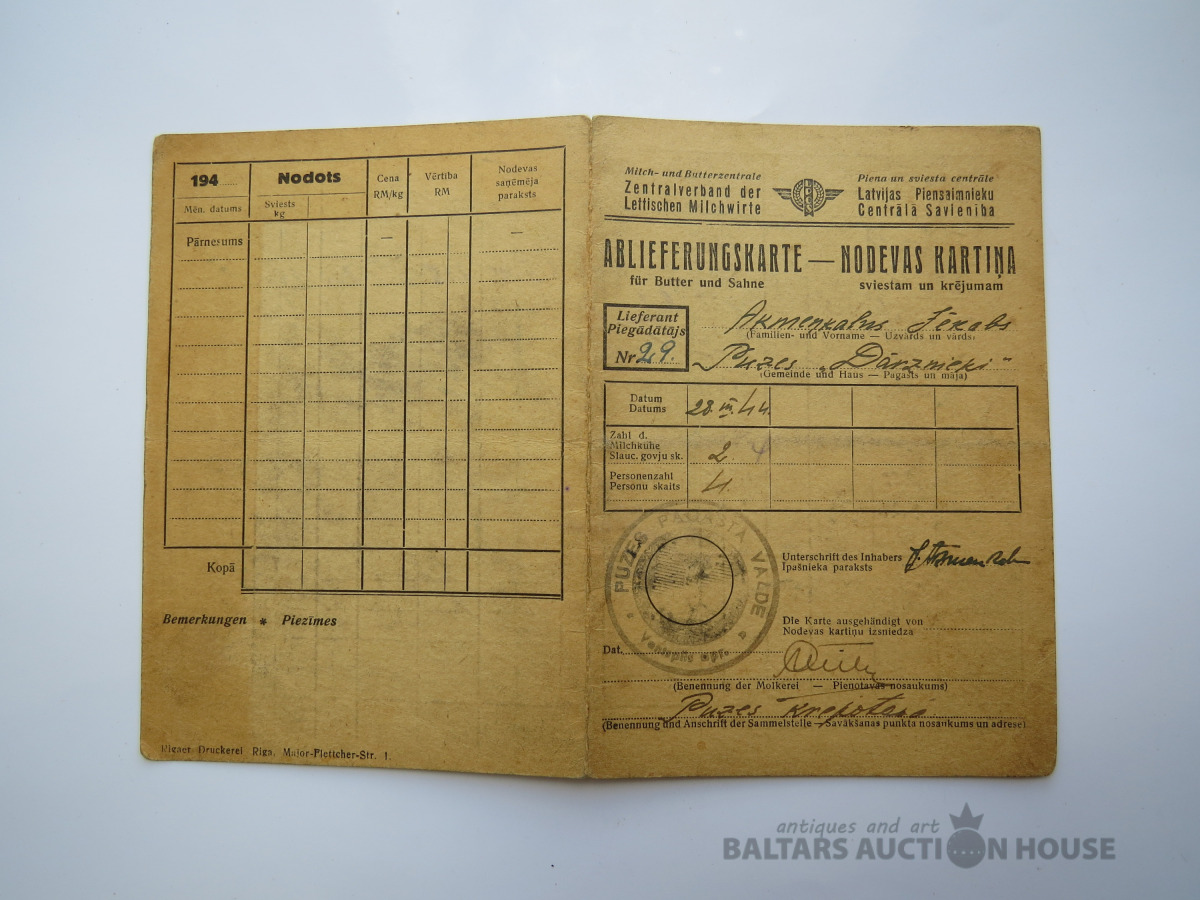 194......
Nodots
Cena
RM/kg
Vērtība
RM
Nodevas
saņēmēja
paraksts
Mēn. datums
Sviests
kg
Pārnesums
—
—
Kopā
Bemerkungen * Piezīmes
Rigaer Druckerei Riga, Major-Plettcher-Str. 1.
Milch- und Butterzentrale
Zentralverband der
Lettischen Milchwirte
Piena un sviesta centrāle
Latvijas Piensaimnieku
Centrālā Savienība
ABLIEFERUNGSKARTE — NODEVAS KARTIŅA
für Butter und Sahne
sviestam un krējumam
Lieferant
Piegādātājs
Nr 29.
Akmeņkalns Jēkabs
(Familien- und Vorname — Uzvārds un vārds)
Puzes „Dārznieki"
(Gemeinde und Haus — Pagasts un māja)
Datum
Datums
28. III. 44.
Zahl d.
Milchkühe
Slauc. govju sk.
2.
Personenzahl
Personu skaits
4.
PUZES PAGASTA VALDE
Ventspils apr.
Unterschrift des Inhabers
Īpašnieka paraksts
Die Karte ausgehändigt von
Nodevas kartiņu izsniedza
Dat.
(Benennung der Molkerei — Pienotavas nosaukums)
Puzes krejotava
(Benennung und Anschrift der Sammelstelle — Savākšanas punkta nosaukums un adrese)
antiques and art
BALTARS AUCTION HOUSE